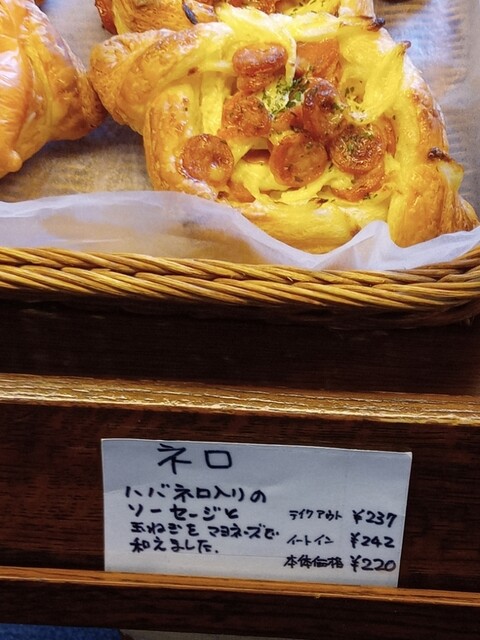 ネロ
ハバネロ入りの
ソーセージと
玉ねぎをマヨネーズで
和えました.
テイクアウト ¥237
イートイン ¥242
本体価格 ¥220